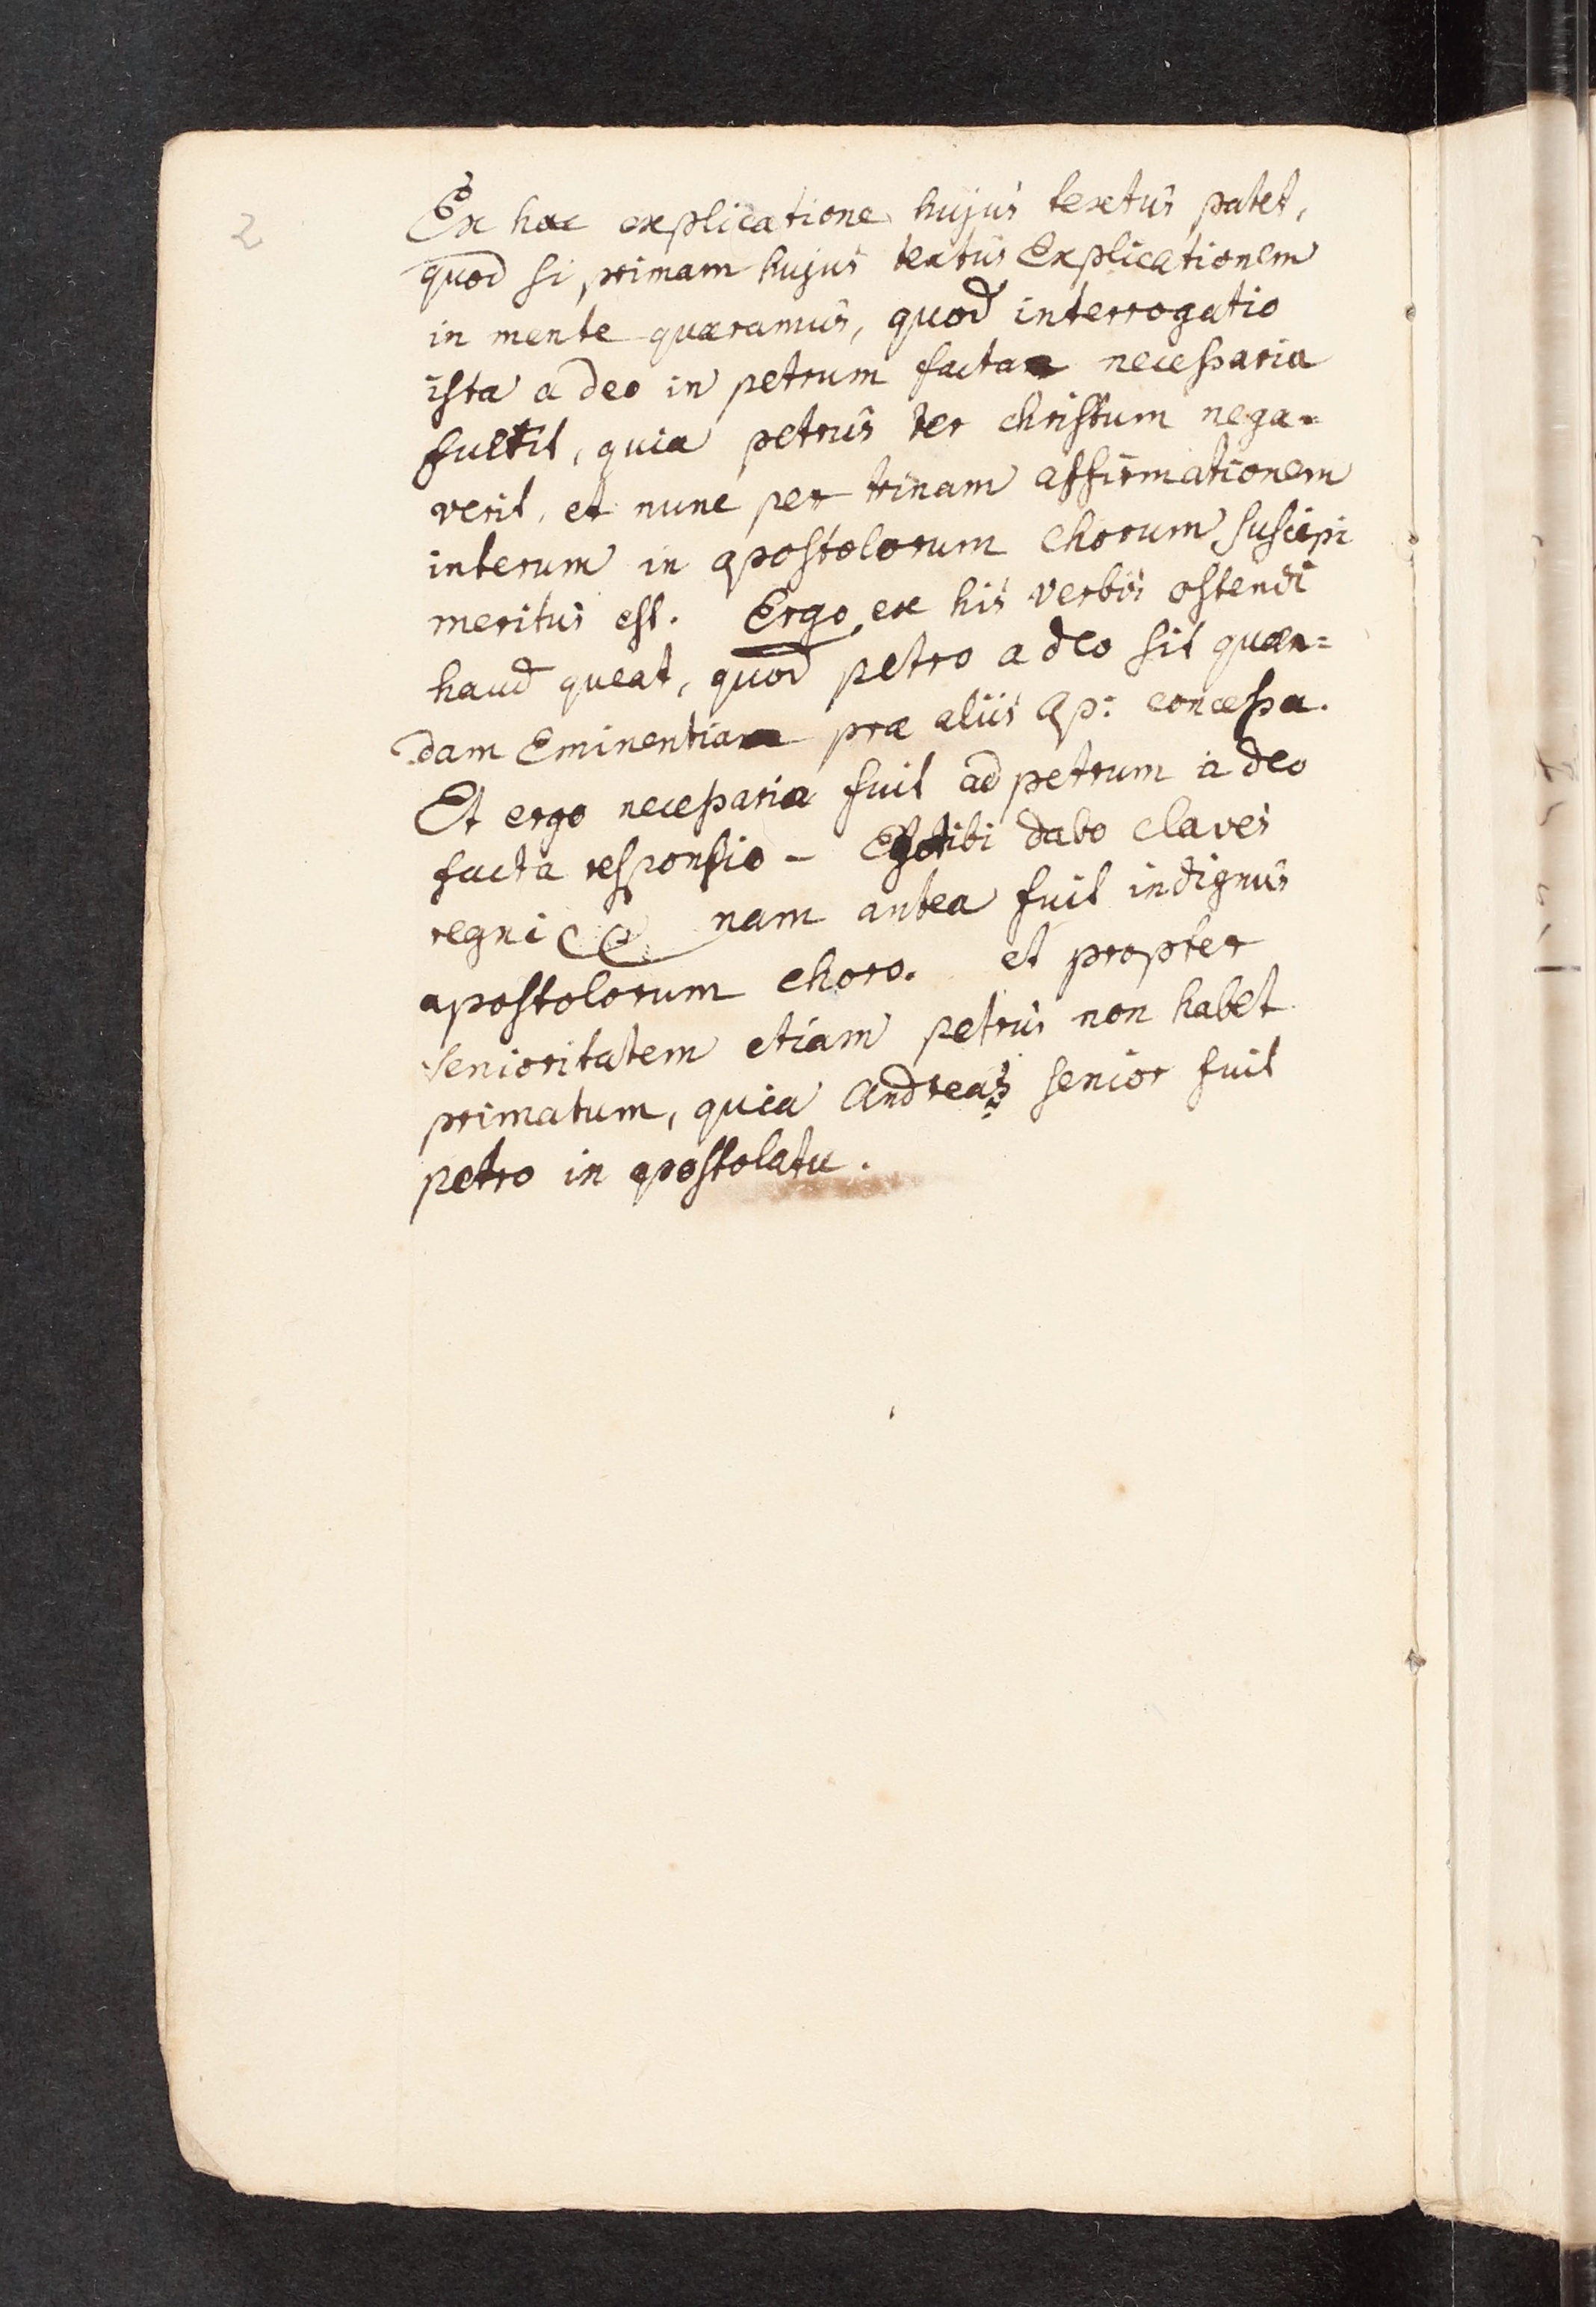 2
Ex hac explicatione hujus textus patet,
quod si primam hujus textus Explicationem
in mente quæramus, quod interrogatio
ista a deo in petrum facta necessaria
fuerit, quia petrus ter christum nega=
verit, et nunc per trinam affirmationem
interum in apostolorum chorum suscipi
meritus est. Ergo ex his verbis ostendi
haud queat, quod petro a deo sit quæn=
dam Eminentia præ aliis Ap: concessa.
Et ergo necessaria fuit ad petrum a deo
facta responsio - tibi dabo claves
regni nam antea fuit indignus
apostolorum choro. et propter
senioritatem etiam petrus non habet
primatum, quia Andreas senior fuit
petro in apostolatu.